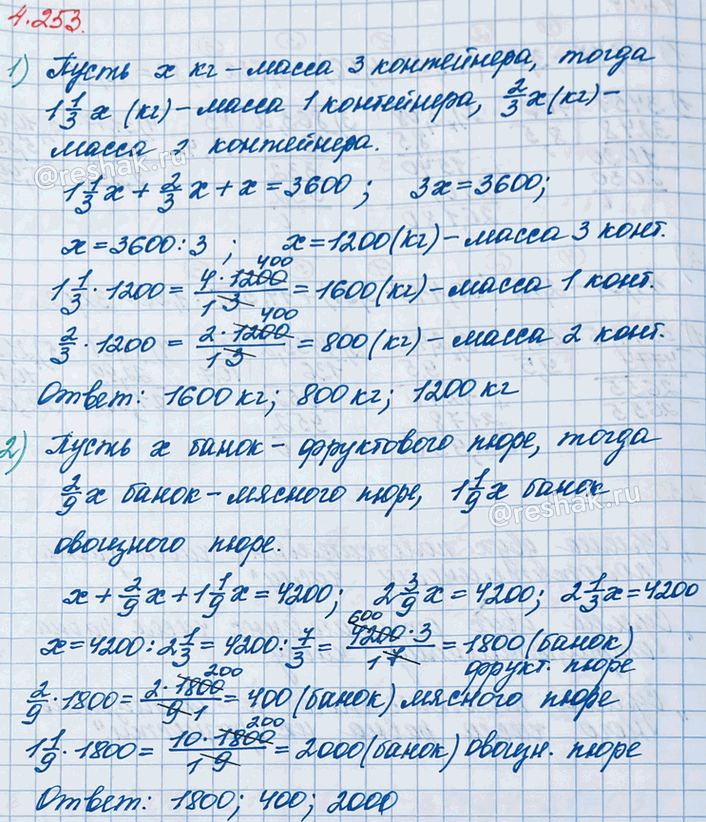 4.253.
1) Пусть x кг – масса 3 контейнера, тогда
1 1/3 x (кг) – масса 1 контейнера, 2/3 x (кг) –
масса 2 контейнера.
@reshak.ru
1 1/3 x + 2/3 x + x = 3600; 3x = 3600;
x = 3600 : 3; x = 1200 (кг) – масса 3 конт.
1 1/3 · 1200 = 4 · 1200 400 / 1 3 = 1600 (кг) – масса 1 конт.
2/3 · 1200 = 2 · 1200 400 / 1 3 = 800 (кг) – масса 2 конт.
Ответ: 1600 кг; 800 кг; 1200 кг
2) Пусть x банок – фруктового пюре, тогда
2/9 x банок – мясного пюре, 1 1/9 x банок
@reshak.ru
овощного пюре.
x + 2/9 x + 1 1/9 x = 4200; 2 3/9 x = 4200; 2 1/3 x = 4200
x = 4200 : 2 1/3 = 4200 : 7/3 = 600 4200 · 3 / 1 7 = 1800 (банок)
фрукт. пюре
2/9 · 1800 = 2 · 1800 200 / 9 1 = 400 (банок) мясного пюре
1 1/9 · 1800 = 10 · 1800 200 / 1 9 = 2000 (банок) овощн. пюре
Ответ: 1800; 400; 2000